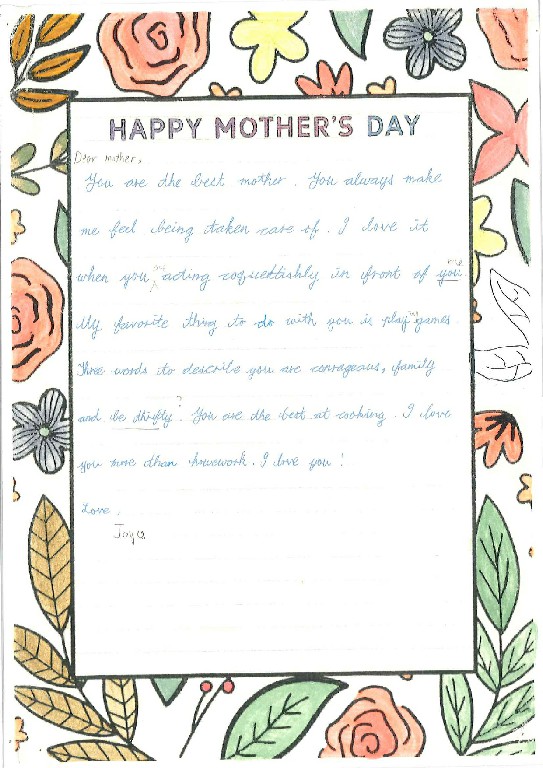 HAPPY MOTHER'S DAY
Dear mother,
You are the best mother. You always make
me feel being taken care of. I love it
when you are acting coquettishly in front of you. me
My favorite thing to do with you is play games.
Three words to describe you are courageous, family
and be thrifty? You are the best at cooking. I love
you more than homework. I love you!
Love,